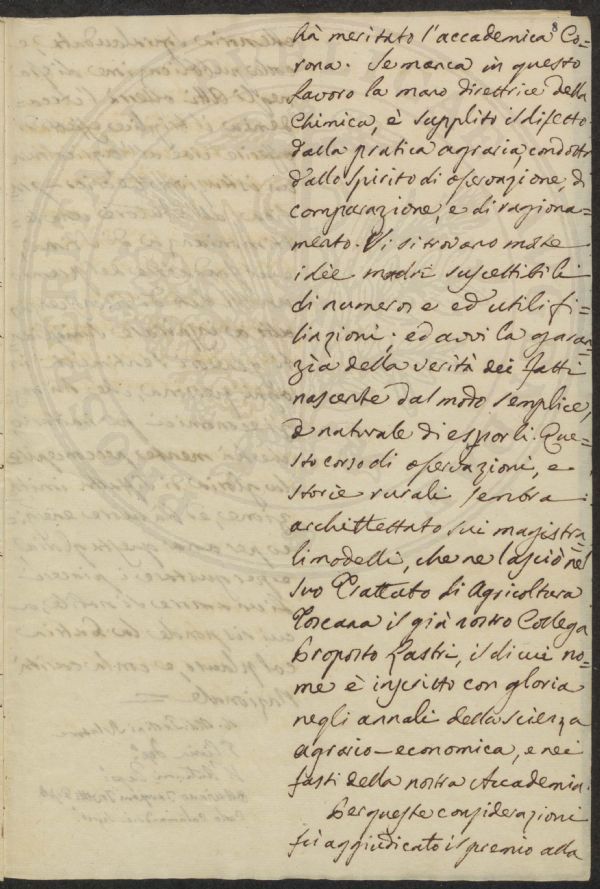 8
hà meritato l'accademica Co=
rona. Se manca in questo
lavoro la mano direttrice della
Chimica, è supplito il difetto
dalla pratica agraria, condotta
dallo spirito di osservazione, di
comparazione, e di raziona=
mento. Vi si trovano molte
idèe madri suscettibili
di numerose ed utili fi=
liazioni; ed avvi la garan=
zìa della verità dei fatti
nascente dal modo semplice,
e naturale di esporli. Que=
sto corso di osservazioni, e
storie rurali sembra
archittettato sui magistra=
li modelli, che ne lasciò nel
suo Trattato di Agricoltura
Toscana il già nostro Collega
Proposto Lastri, il di cui no=
me è inscritto con gloria
negli annali della scienza
agrario-economica, e nei
fasti della nostra Accademia.
Per queste considerazioni
fù aggiudicato il premio alla